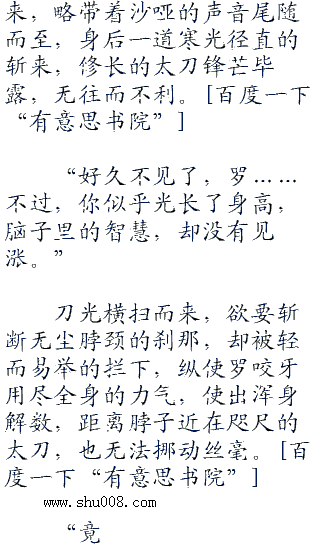 来，略带着沙哑的声音尾随
而至，身后一道寒光径直的
斩来，修长的太刀锋芒毕
露，无往而不利。[百度一下
“有意思书院”]
“好久不见了，罗……
不过，你似乎光长了身高，
脑子里的智慧，却没有见
涨。”
刀光横扫而来，欲要斩
断无尘脖颈的刹那，却被轻
而易举的拦下，纵使罗咬牙
用尽全身的力气，使出浑身
解数，距离脖子近在咫尺的
太刀，也无法挪动丝毫。[百
度一下“有意思书院”]
www.shu008.com
“竟